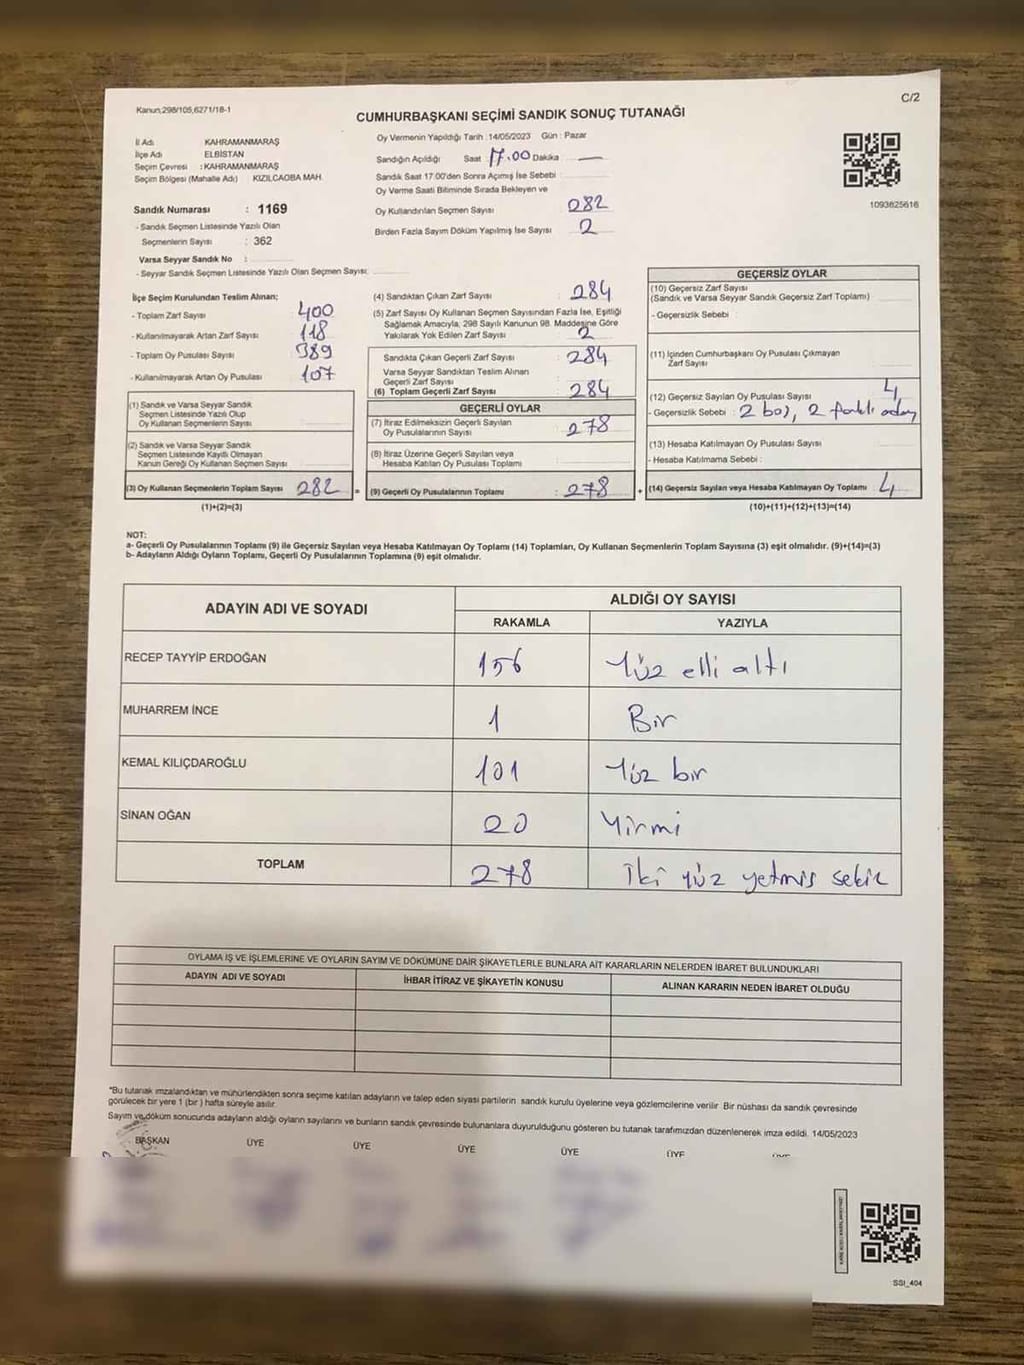 Kanun;298/105,6271/18-1
C/2
CUMHURBAŞKANI SEÇİMİ SANDIK SONUÇ TUTANAĞI
İl Adı KAHRAMANMARAŞ
İlçe Adı ELBİSTAN
Seçim Çevresi : KAHRAMANMARAŞ
Seçim Bölgesi (Mahalle Adı) KIZILCAOBA MAH.
Sandık Numarası : 1169
- Sandık Seçmen Listesinde Yazılı Olan
Seçmenlerin Sayısı : 362
Varsa Seyyar Sandık No :
- Seyyar Sandık Seçmen Listesinde Yazılı Olan Seçmen Sayısı:
Oy Vermenin Yapıldığı Tarih :14/05/2023 Gün : Pazar
Sandığın Açıldığı Saat : 17.00 Dakika —
Sandık Saat 17:00'den Sonra Açımış İse Sebebi :
Oy Verme Saati Bitiminde Sırada Bekleyen ve
Oy Kullandırılan Seçmen Sayısı 282
Birden Fazla Sayım Döküm Yapılmış İse Sayısı 2
1093625616
İlçe Seçim Kurulundan Teslim Alınan;
- Toplam Zarf Sayısı : 400
- Kullanılmayarak Artan Zarf Sayısı : 118
- Toplam Oy Pusulası Sayısı : 389
- Kullanılmayarak Artan Oy Pusulası : 107
(1) Sandık ve Varsa Seyyar Sandık
Seçmen Listesinde Yazılı Olup
Oy Kullanan Seçmenlerin Sayısı :
(2) Sandık ve Varsa Seyyar Sandık
Seçmen Listesinde Kayıtlı Olmayan
Kanun Gereği Oy Kullanan Seçmen Sayısı :
(3) Oy Kullanan Seçmenlerin Toplam Sayısı 282 =
(1)+(2)=(3)
(4) Sandıktan Çıkan Zarf Sayısı : 284
(5) Zarf Sayısı Oy Kullanan Seçmen Sayısından Fazla İse, Eşitliği
Sağlamak Amacıyla, 298 Sayılı Kanunun 98. Maddesine Göre
Yakılarak Yok Edilen Zarf Sayısı : 2
Sandıkta Çıkan Geçerli Zarf Sayısı : 284
Varsa Seyyar Sandıktan Teslim Alınan
Geçerli Zarf Sayısı :
(6) Toplam Geçerli Zarf Sayısı : 284
GEÇERLİ OYLAR
(7) İtiraz Edilmeksizin Geçerli Sayılan
Oy Pusulalarının Sayısı : 278
(8) İtiraz Üzerine Geçerli Sayılan veya
Hesaba Katılan Oy Pusulası Toplamı :
(9) Geçerli Oy Pusulalarının Toplamı : 278 +
GEÇERSİZ OYLAR
(10) Geçersiz Zarf Sayısı
(Sandık ve Varsa Seyyar Sandık Geçersiz Zarf Toplamı)
- Geçersizlik Sebebi :
(11) İçinden Cumhurbaşkanı Oy Pusulası Çıkmayan
Zarf Sayısı :
(12) Geçersiz Sayılan Oy Pusulası Sayısı : 4
- Geçersizlik Sebebi : 2 boş, 2 farklı aday
(13) Hesaba Katılmayan Oy Pusulası Sayısı :
- Hesaba Katılmama Sebebi :
(14) Geçersiz Sayılan veya Hesaba Katılmayan Oy Toplamı : 4
(10)+(11)+(12)+(13)=(14)
NOT:
a- Geçerli Oy Pusulalarının Toplamı (9) ile Geçersiz Sayılan veya Hesaba Katılmayan Oy Toplamı (14) Toplamları, Oy Kullanan Seçmenlerin Toplam Sayısına (3) eşit olmalıdır. (9)+(14)=(3)
b- Adayların Aldığı Oyların Toplamı, Geçerli Oy Pusulalarının Toplamına (9) eşit olmalıdır.
ADAYIN ADI VE SOYADI ALDIĞI OY SAYISI
RAKAMLA YAZIYLA
RECEP TAYYİP ERDOĞAN 156 Yüz elli altı
MUHARREM İNCE 1 Bir
KEMAL KILIÇDAROĞLU 101 Yüz bir
SİNAN OĞAN 20 Yirmi
TOPLAM 278 İki yüz yetmiş sekiz
OYLAMA İŞ VE İŞLEMLERİNE VE OYLARIN SAYIM VE DÖKÜMÜNE DAİR ŞİKAYETLERLE BUNLARA AİT KARARLARIN NELERDEN İBARET BULUNDUKLARI
ADAYIN ADI VE SOYADI İHBAR İTİRAZ VE ŞİKAYETİN KONUSU ALINAN KARARIN NEDEN İBARET OLDUĞU
*Bu tutanak imzalandıktan ve mühürlendikten sonra seçime katılan adayların ve talep eden siyasi partilerin sandık kurulu üyelerine veya gözlemcilerine verilir Bir nüshası da sandık çevresinde
görülecek bir yere 1 (bir ) hafta süreyle asılır.
Sayım ve döküm sonucunda adayların aldığı oyların sayılarını ve bunların sandık çevresinde bulunanlara duyurulduğunu gösteren bu tutanak tarafımızdan düzenlenerek imza edildi. 14/05/2023
BAŞKAN ÜYE ÜYE ÜYE ÜYE ÜYE ÜYE
SSI_404